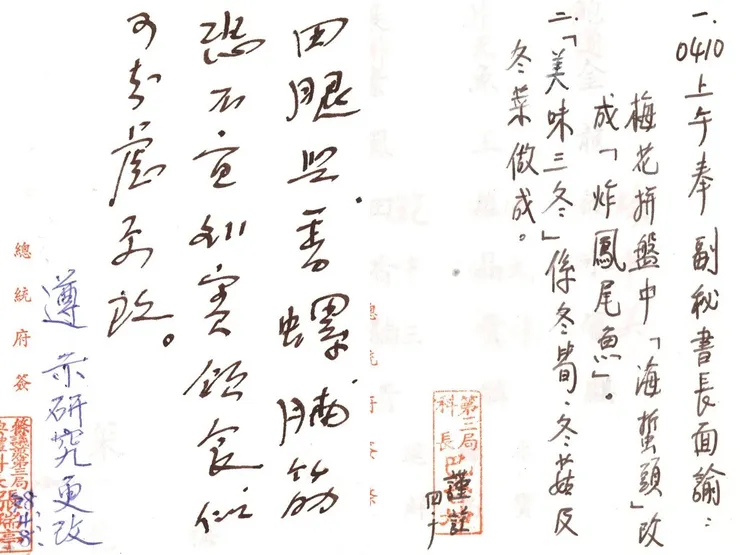 一、0410上午奉副秘書長面諭：
梅花拼盤中「海蜇頭」改
成「炸鳳尾魚」。
二、「美味三冬」係冬筍、冬菇及
冬菜做成。
第三局
科長
謹註
四、十
田腿與香螺脯筋
恐不宜外賓飲食似
可考慮更改。
遵示研究更改
總統府簽
張瑞亭